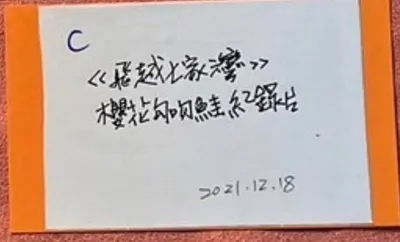 C
<<飛越七家灣>>
櫻花鈎吻鮭紀錄片
2021.12.18